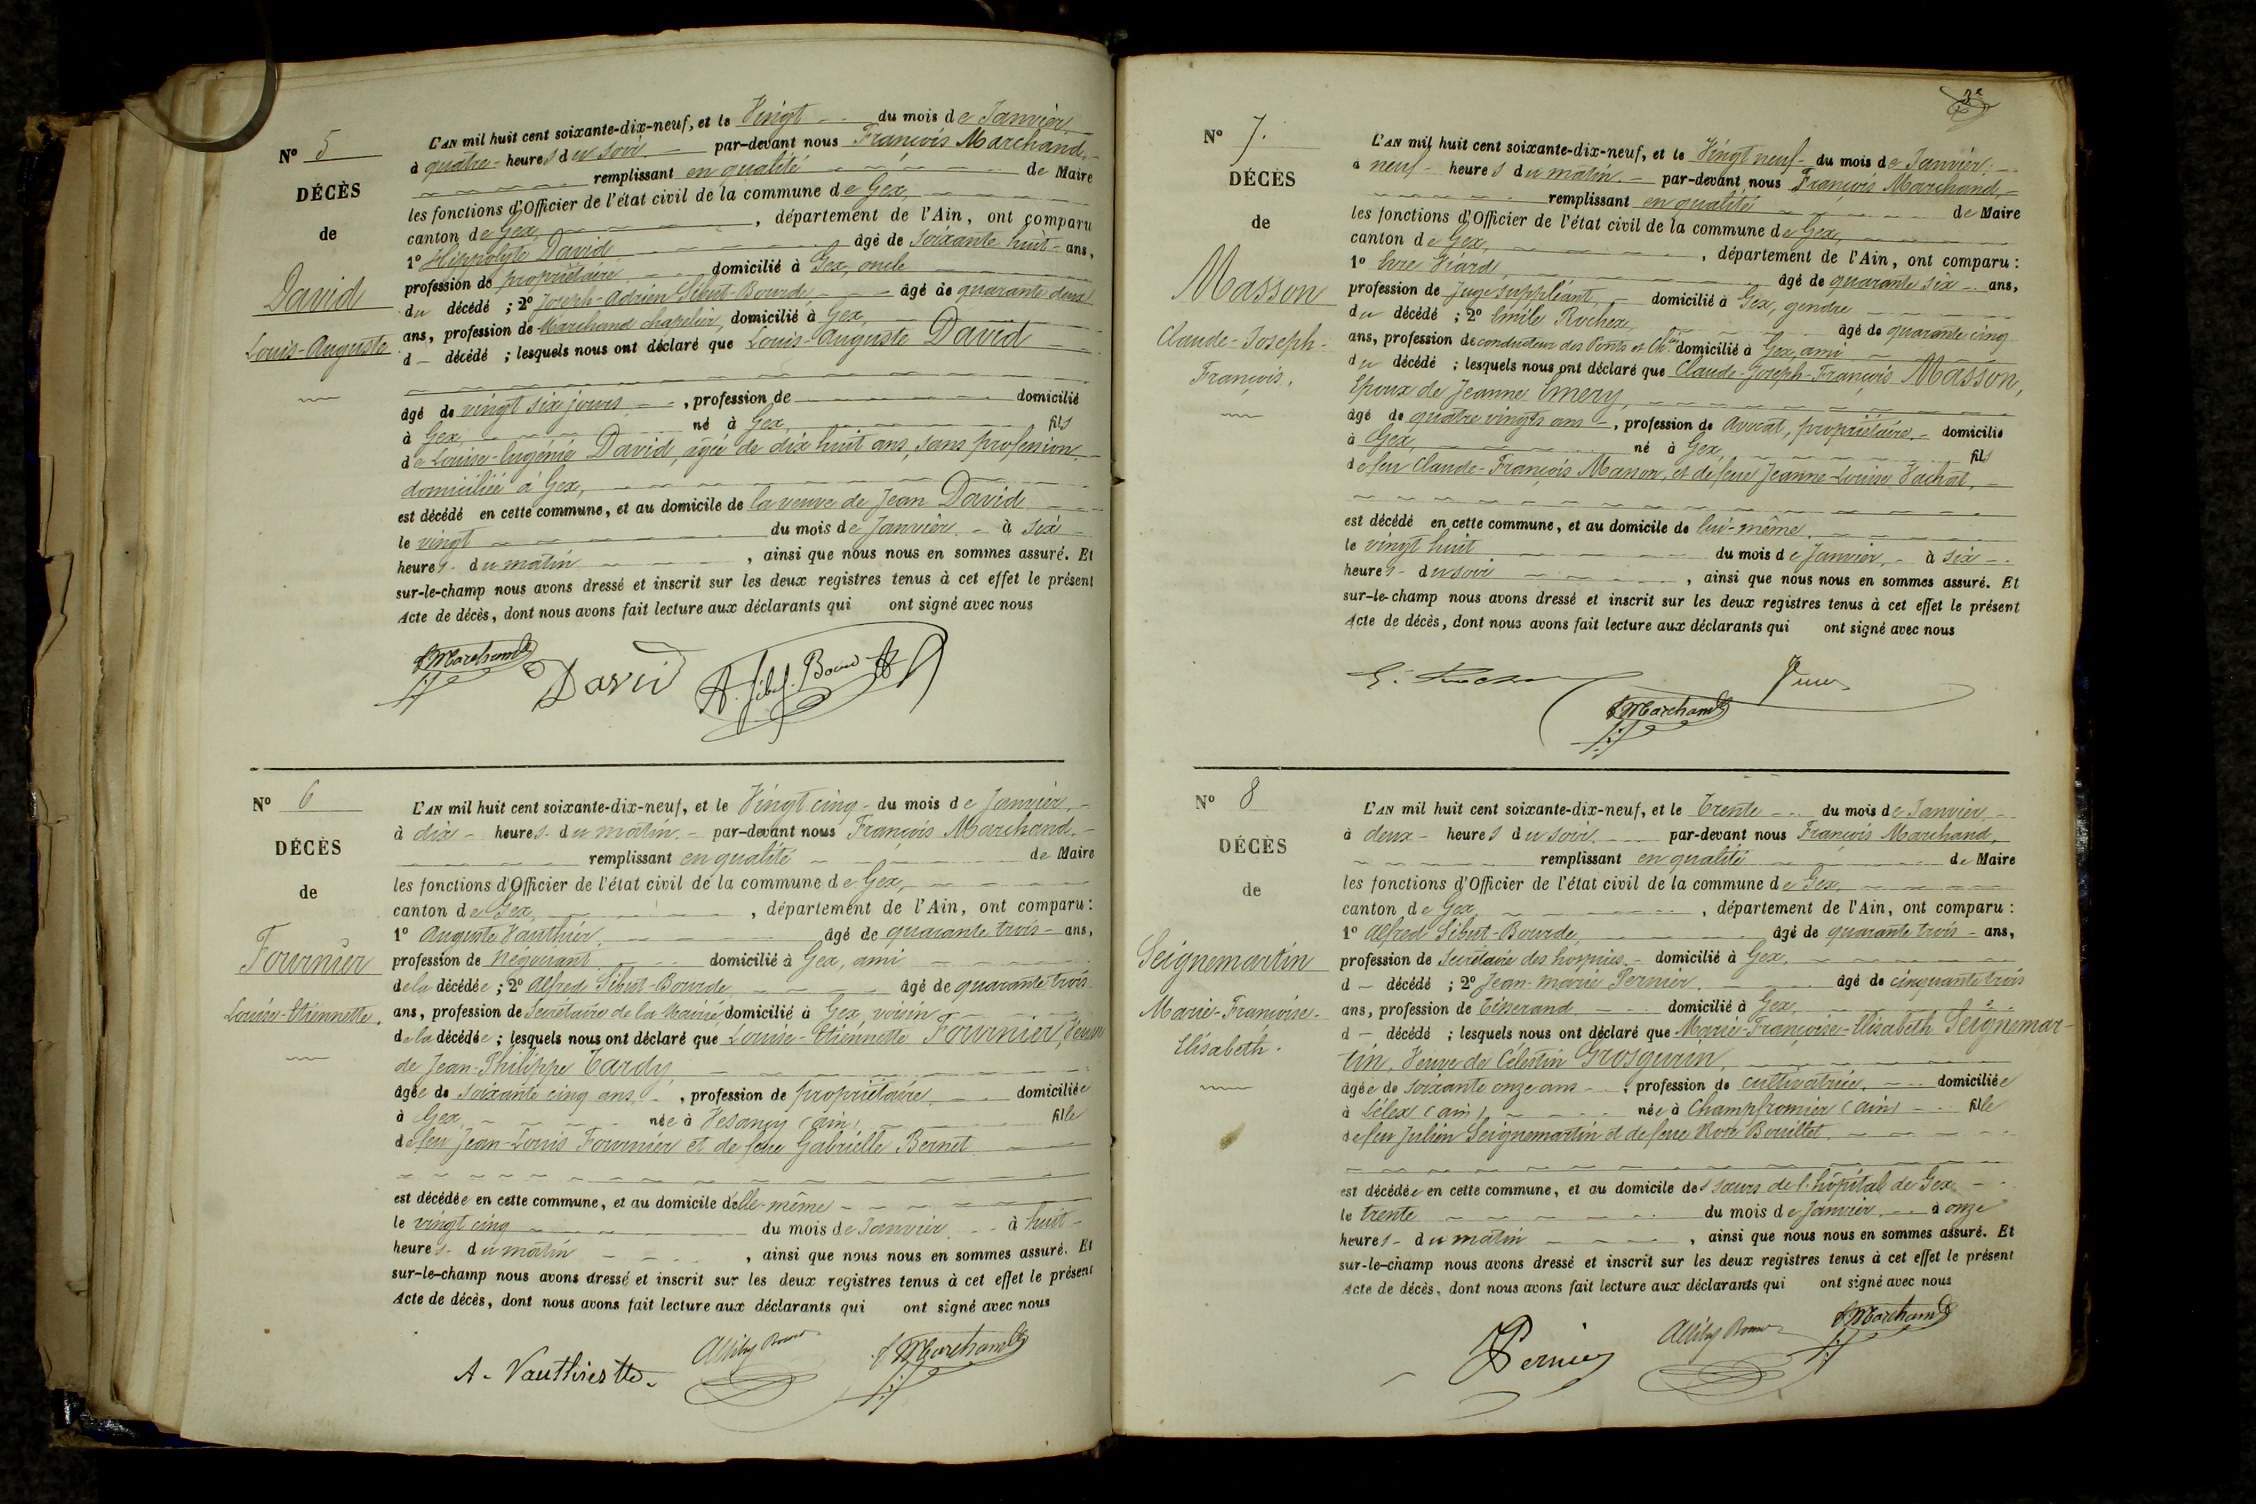 N° 5
DÉCÈS
de
David
Louis-Auguste
L'AN mil huit cent soixante-dix-neuf, et le Vingt du mois de Janvier
à quatre heures du soir par-devant nous François Marchand,
remplissant en qualité de Maire
les fonctions d'Officier de l'état civil de la commune de Gex,
canton de Gex, département de l'Ain, ont comparu
1° Hippolyte David âgé de soixante huit ans,
profession de propriétaire domicilié à Gex, oncle
du décédé ; 2° Joseph-Adrien Sibut-Bourde âgé de quarante deux
ans, profession de Marchand chapelier, domicilié à Gex,
d décédé ; lesquels nous ont déclaré que Louis-Auguste David
âgé de vingt six jours, profession de domicilié
à Gex, né à Gex, fils
de Louise-Eugénie David, âgée de dix huit ans, sans profession
domiciliée à Gex,
est décédé en cette commune, et au domicile de la veuve de Jean David
le vingt du mois de Janvier à six
heures du matin, ainsi que nous nous en sommes assuré. Et
sur-le-champ nous avons dressé et inscrit sur les deux registres tenus à cet effet le présent
Acte de décès, dont nous avons fait lecture aux déclarants qui ont signé avec nous
F Marchand David A. Sibut-Bourde
N° 6
DÉCÈS
de
Fournier
Louise-Etiennette.
L'AN mil huit cent soixante-dix-neuf, et le Vingt cinq du mois de Janvier,
à dix heures du matin par-devant nous François Marchand,
remplissant en qualité de Maire
les fonctions d'Officier de l'état civil de la commune de Gex,
canton de Gex, département de l'Ain, ont comparu :
1° Auguste Vauthier, âgé de quarante trois ans,
profession de Négociant domicilié à Gex, ami
de la décédée ; 2° Alfred Sibut-Bourde âgé de quarante trois
ans, profession de Secrétaire de la Mairie domicilié à Gex, voisin
de la décédée ; lesquels nous ont déclaré que Louise-Etiennette Fournier, Veuve
de Jean-Philippe Tardy
âgée de soixante cinq ans, profession de propriétaire domiciliée
à Gex, née à Vesancy (Ain), fille
de feu Jean-Louis Fournier et de feue Gabrielle Bernet
est décédée en cette commune, et au domicile d'elle-même
le vingt cinq du mois de Janvier à huit
heures du matin, ainsi que nous nous en sommes assuré. Et
sur-le-champ nous avons dressé et inscrit sur les deux registres tenus à cet effet le présent
Acte de décès, dont nous avons fait lecture aux déclarants qui ont signé avec nous
A. Vauthier F Marchand
2e
N° 7.
DÉCÈS
de
Masson
Claude-Joseph-
François,
L'AN mil huit cent soixante-dix-neuf, et le Vingt neuf du mois de Janvier,
à neuf heures du matin par-devant nous François Marchand,
remplissant en qualité de Maire
les fonctions d'Officier de l'état civil de la commune de Gex,
canton de Gex, département de l'Ain, ont comparu :
1° âgé de quarante six ans,
profession de Juge suppléant, domicilié à Gex, gendre
du décédé ; 2° Emile Rochex, âgé de quarante cinq
ans, profession de conducteur des Ponts et Ch.ées domicilié à Gex, ami
du décédé ; lesquels nous ont déclaré que Claude-Joseph-François Masson,
Epoux de Jeanne Emery,
âgé de quatre vingts ans, profession de Avocat, propriétaire domicilié
à Gex, né à Gex, fils
de feu Claude-François Masson, et de feue Jeanne-Louise Vachat,
est décédé en cette commune, et au domicile de lui-même
le vingt huit du mois de Janvier, à six
heures du soir, ainsi que nous nous en sommes assuré. Et
sur-le-champ nous avons dressé et inscrit sur les deux registres tenus à cet effet le présent
Acte de décès, dont nous avons fait lecture aux déclarants qui ont signé avec nous
F Marchand
N° 8
DÉCÈS
de
Seignemartin
Marie-Françoise-
Elisabeth.
L'AN mil huit cent soixante-dix-neuf, et le Trente du mois de Janvier
à deux heures du soir par-devant nous François Marchand,
remplissant en qualité de Maire
les fonctions d'Officier de l'état civil de la commune de Gex,
canton de Gex, département de l'Ain, ont comparu :
1° Alfred Sibut-Bourde, âgé de quarante trois ans,
profession de Secrétaire des hospices domicilié à Gex,
d décédé ; 2° Jean-Marie Pernier, âgé de cinquante trois
ans, profession de Tisserand domicilié à Gex,
d décédé ; lesquels nous ont déclaré que Marie-Françoise-Elisabeth Seignemar-
tin, Veuve de Célestin Grosgurin,
âgée de soixante onze ans, profession de cultivatrice, domiciliée
à Lélex (Ain) née à Champfromier (Ain) fille
de feu Julien Seignemartin et de feue Rose Bouillet
est décédée en cette commune, et au domicile des sœurs de l'hôpital de Gex
le trente du mois de Janvier à onze
heures du matin, ainsi que nous nous en sommes assuré. Et
sur-le-champ nous avons dressé et inscrit sur les deux registres tenus à cet effet le présent
Acte de décès, dont nous avons fait lecture aux déclarants qui ont signé avec nous
Pernier F Marchand